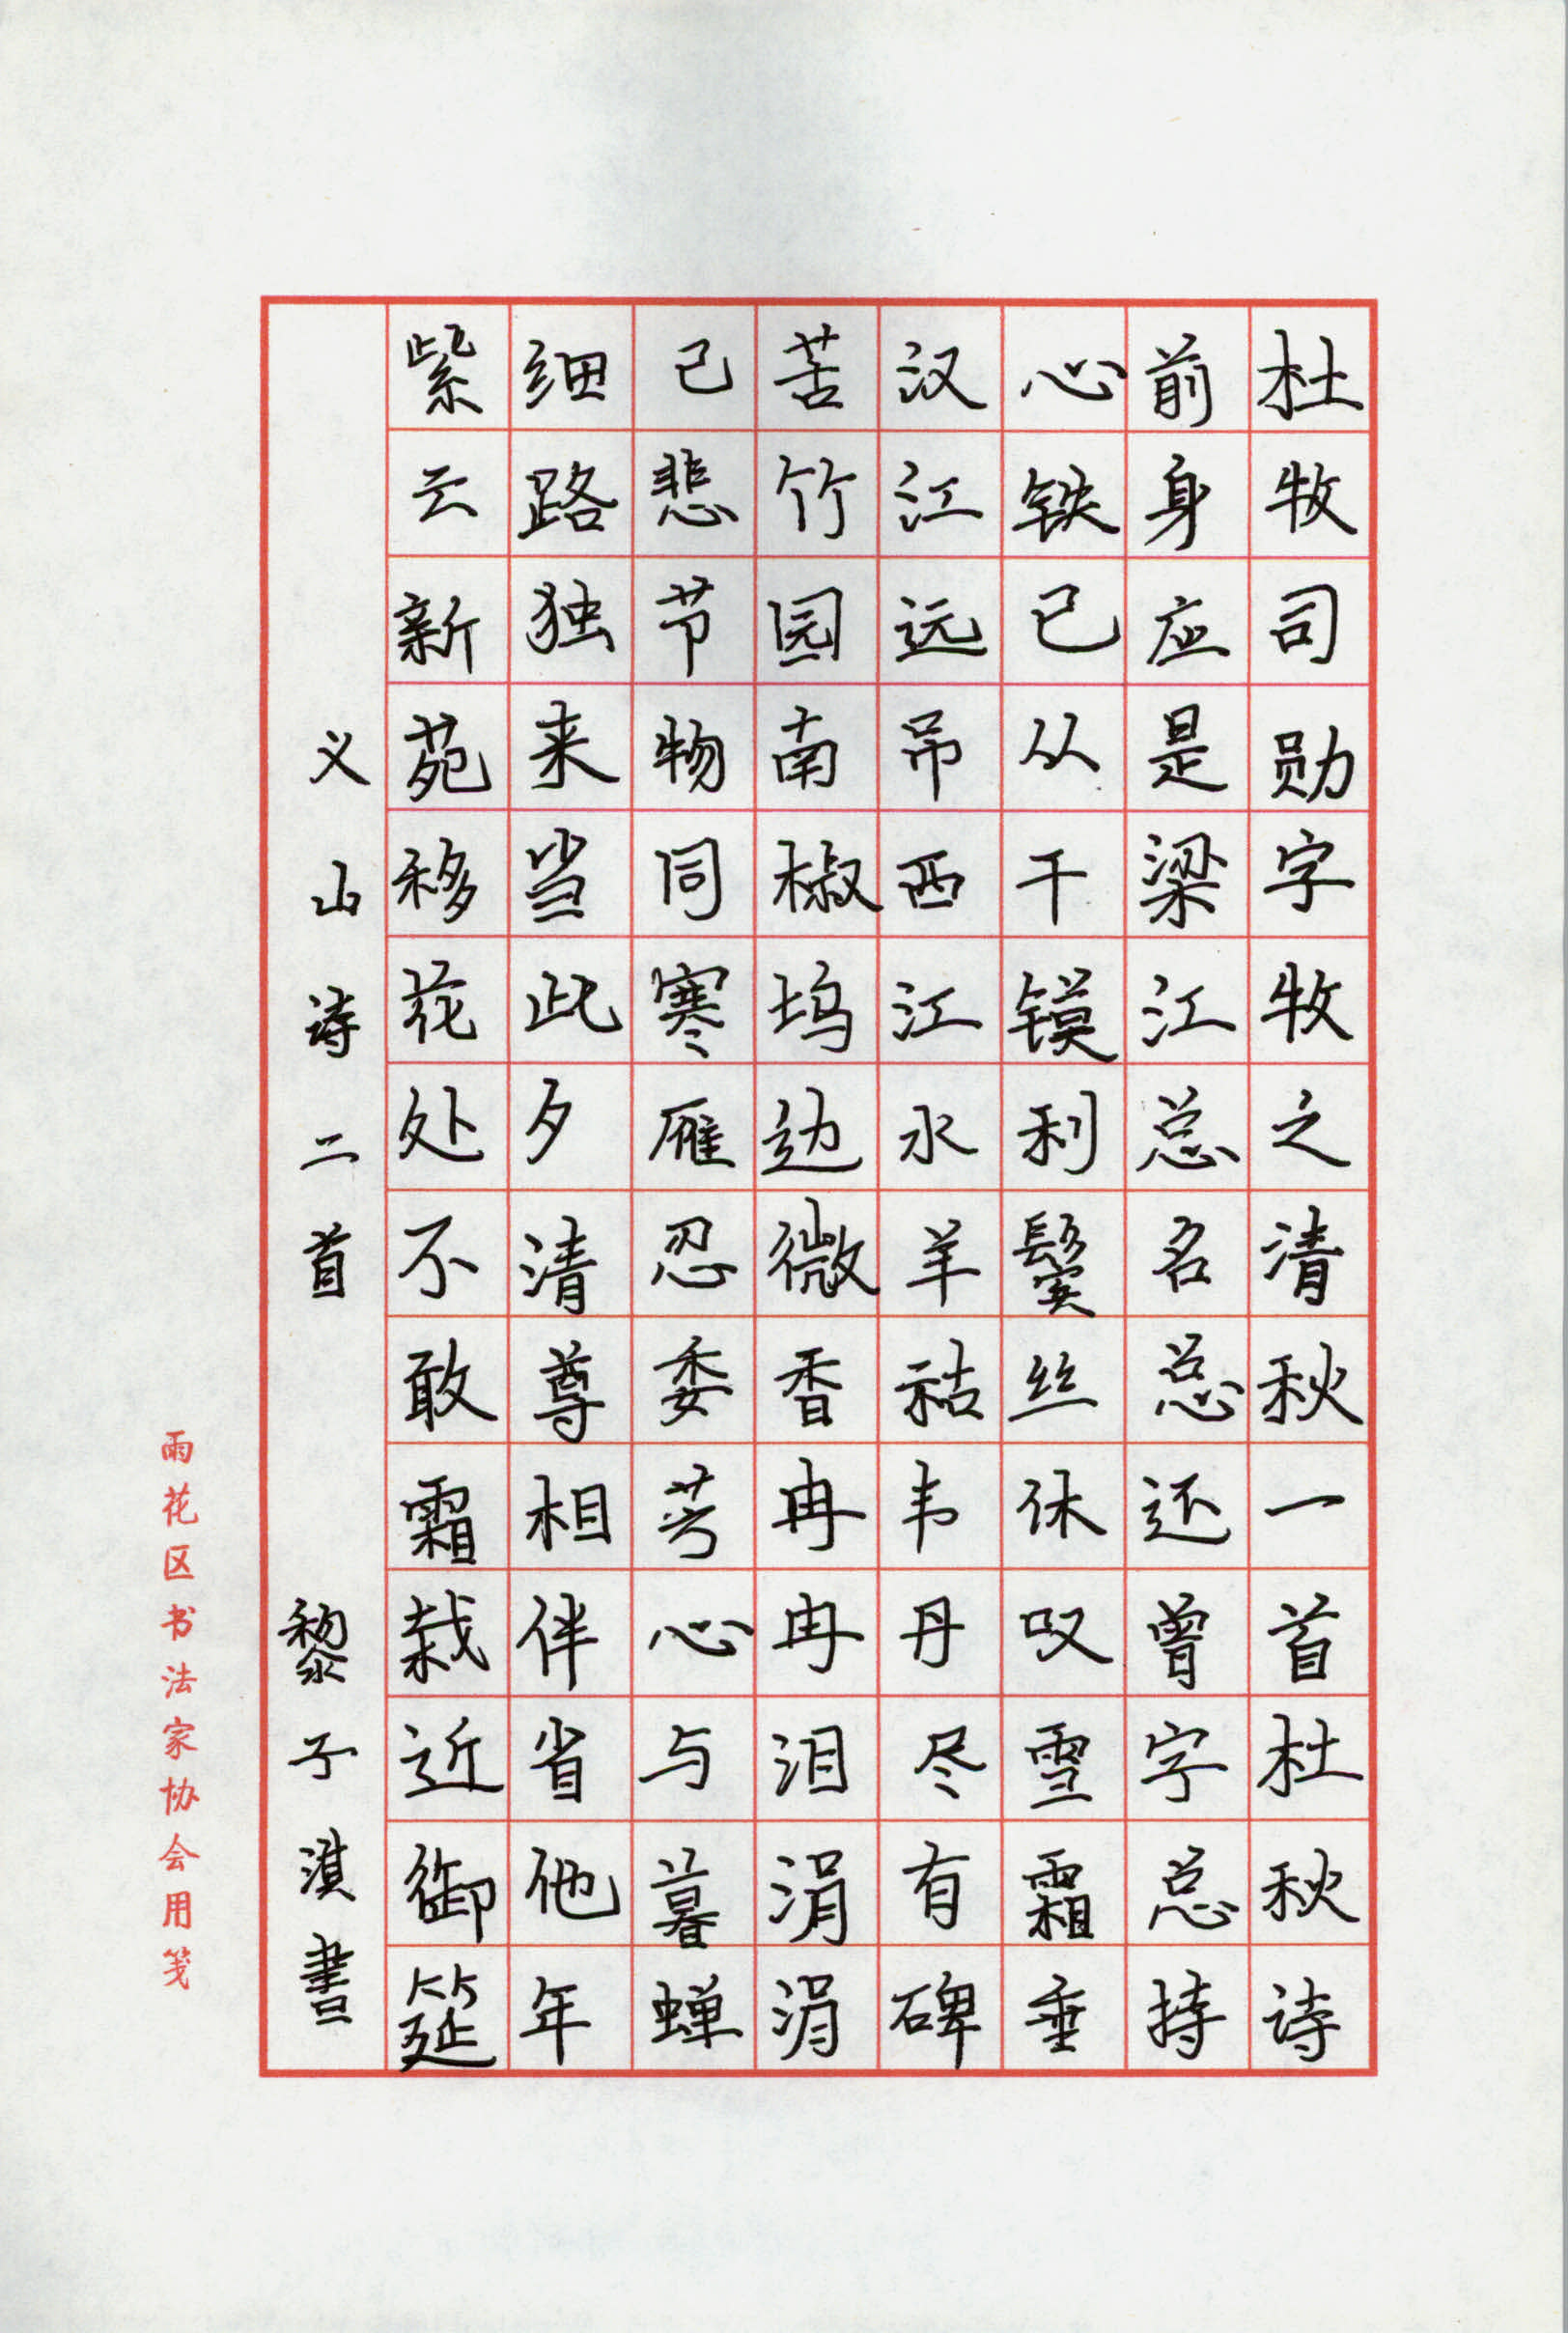 杜牧司勋字牧之清秋一首杜秋诗
前身应是梁江总名总还曾字总持
心铁已从干镆利鬓丝休叹雪霜垂
汉江远吊西江水羊祜韦丹尽有碑
苦竹园南椒坞边微香冉冉泪涓涓
已悲节物同寒雁忍委芳心与暮蝉
细路独来当此夕清尊相伴省他年
紫云新苑移花处不敢霜栽近御筵
义山诗二首
黎子淇書
雨花区书法家协会用笺